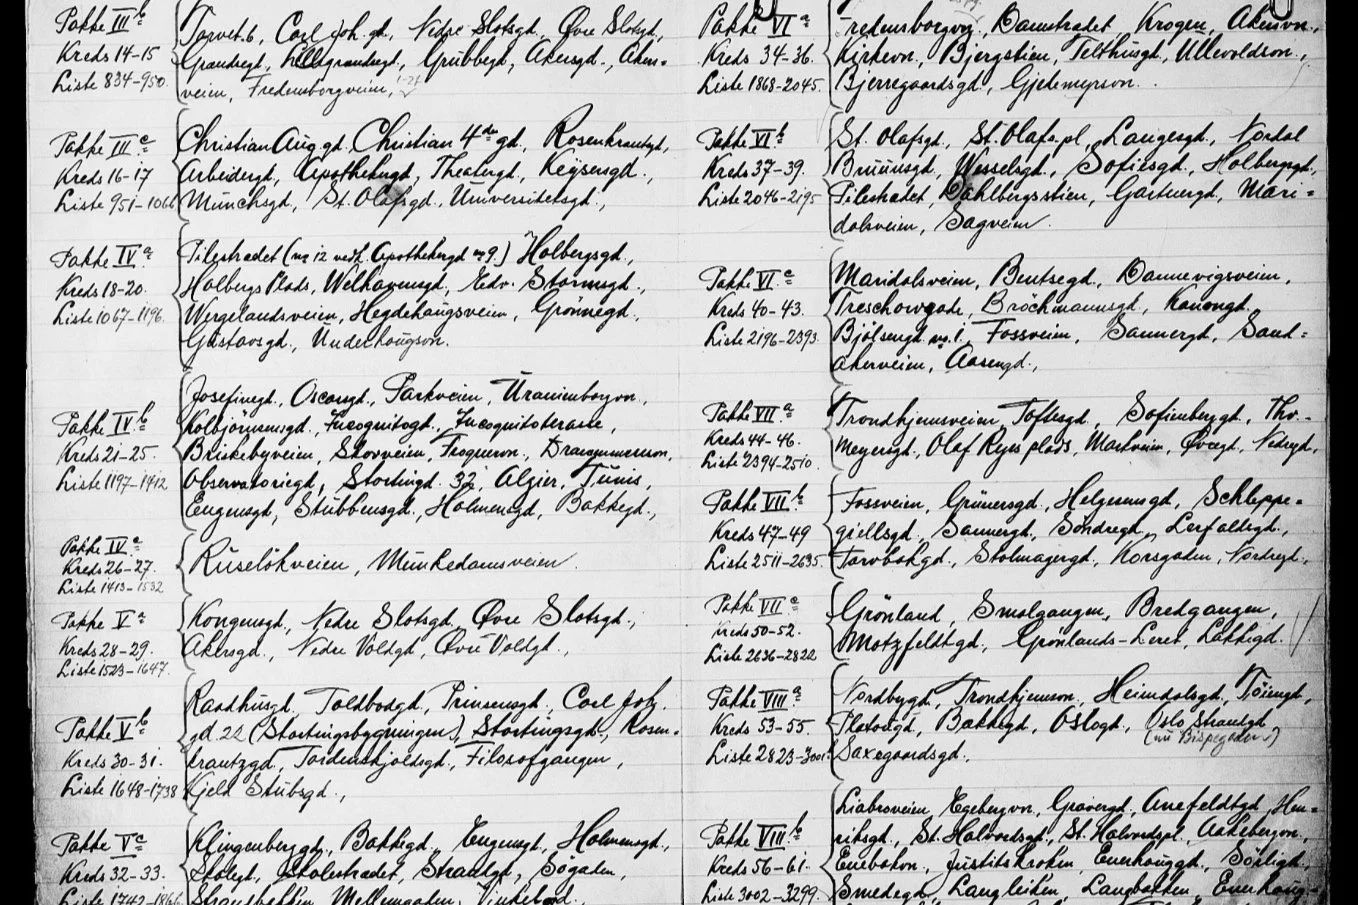 Pakke III b
Kreds 14-15
Liste 834-950.
Torvet 6, Carl Joh. gd., Nedre Slotsgd, Øvre Slotsgd,
Grændsegd, Lillegrændsegd, Grubbegd, Akersgd., Akers=
veien, Fredensborgveien,
Pakke III c
Kreds 16-17
Liste 951-1066
Christian Aug. gd. Christian 4de gd, Rosenkrantzgd,
Arbeidergd, Apothekergd, Theatergd, Keysersgd.,
Munchsgd, St. Olafsgd, Universitetsgd.,
Pakke IV a
Kreds 18-20.
Liste 1067-1196.
Pilestrædet (nr 12 vedk. Apothekergd nr 9.) Holbergsgd.,
Holbergs Plads, Welhavensgd, Edv. Stormsgd.,
Wergelandsveien, Hegdehaugsveien, Grønnegd.,
Gustavsgd., Underhaugsvn.
Pakke IV b
Kreds 21-25.
Liste 1197-1412
Josefinegd., Oscarsgd., Parkveien, Uranienborgvn.,
Kolbjörnsensgd., Incognitogd., Incognitoterasse,
Briskebyveien, Skovveien, Frognervn., Drammensveien,
Observatoriegd., Stortingd. 32, Algier, Tunis,
Engensgd, Stubbensgd., Holmensgd, Bakkegd.,
Pakke IV c
Kreds 26-27.
Liste 1413-1532
Ruselökveien, Munkedamsveien.
Pakke V a
Kreds 28-29.
Liste 1523-1647.
Kongensgd, Nedre Slotsgd, Øvre Slotsgd.,
Akersgd., Nedre Voldgd, Øvre Voldgd.,
Pakke V b
Kreds 30-31.
Liste 1648-1738
Raadhusgd, Toldbodgd, Prinsensgd, Carl Joh.
gd 22 (Stortingsbygningen), Stortingsgd., Rosen=
krantzgd, Tordenskjoldsgd., Filosofgangen,
Kjeld Stubsgd.,
Pakke V c
Kreds 32-33.
Liste 1742-1866
Klingenberggd, Bakkegd, Engensgd, Holmensgd.,
Skolegd, Skolestrædet, Strandgd, Søgaden,
Strandbakken, Mellemgaden, Vinkelgd.
Pakke VI a
Kreds 34-36.
Liste 1868-2045.
Fredensborgvej, Damstrædet, Krogen, Akersvn.,
Kirkevn, Bjergstien, Telthusgd, Ullevoldsvn.,
Bjerregaardsgd, Gjetemyrsvn.
Pakke VI b
Kreds 37-39.
Liste 2046-2195
St. Olafsgd, St. Olafs pl., Langesgd, Nordal
Brunsgd, Wesselsgd, Sofiesgd, Holbergsgd,
Pilestrædet, Dahlbergsstien, Gartnergd, Mari=
dalsveien, Sagveien.
Pakke VI c
Kreds 40-43.
Liste 2196-2393.
Maridalsveien, Bentsegd, Dannevigsveien,
Treschowgade, Bröchmannsgd, Kanongd.
Bjölsengd. nr. 1, Fossveien, Sannergd, Sand=
akerveien, Aasengd.,
Pakke VII a
Kreds 44-46.
Liste 2394-2510.
Trondhjemsveien, Toftesgd., Sofienberggd, Thv.
Meyersgd, Olaf Ryes plads, Markveien, Øvregd, Nedregd,
Pakke VII b
Kreds 47-49
Liste 2511-2635
Fossveien, Grünersgd., Helgesensgd, Schleppe=
grellsgd., Sannergd, Söndregd., Leirfaldsgd.,
Torvbakgd, Stolmagergd, Korsgaden, Nordregd.,
Pakke VII c
Kreds 50-52.
Liste 2636-2822
Grönland, Smalgangen, Bredgangen,
Motzfeldtgd, Grönlands-Leret, Lakkegd.
Pakke VIII a
Kreds 53-55
Liste 2823-3001.
Nordbygd, Trondhjemsvn, Heimdalsgd, Töiengd,
Platousgd, Bakkegd, Oslogd, Oslo Strandgd,
(nu Bispegaden)
Saxegaardsgd.,
Pakke VIII b
Kreds 56-61.
Liste 3002-3299.
Liabroveien, Egebergvn, Grövergd, Arnefeldtgd, Hen=
riksgd., St. Halvardsgd., St. Halvardspl., Aakebergvn,
Enebakvn, Justitskroken, Enerhauggd, Sörligd.
Smedegd, Langleiken, Langbakken, Enerhaug=